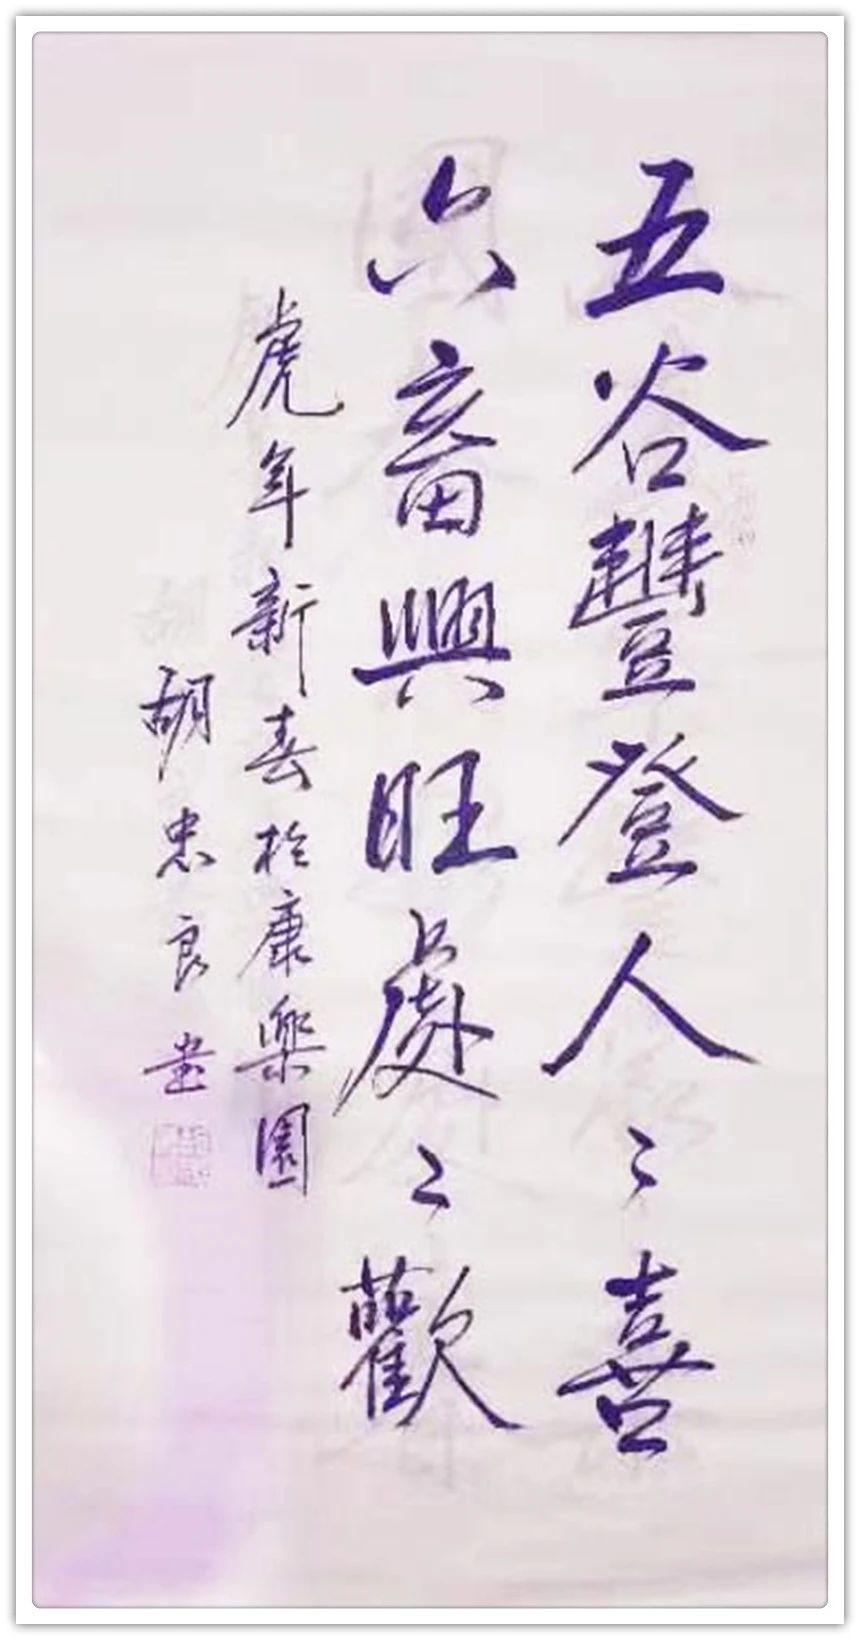 五谷豐登人〻喜
六畜興旺處〻歡
虎年新喜於康樂園
胡忠良書